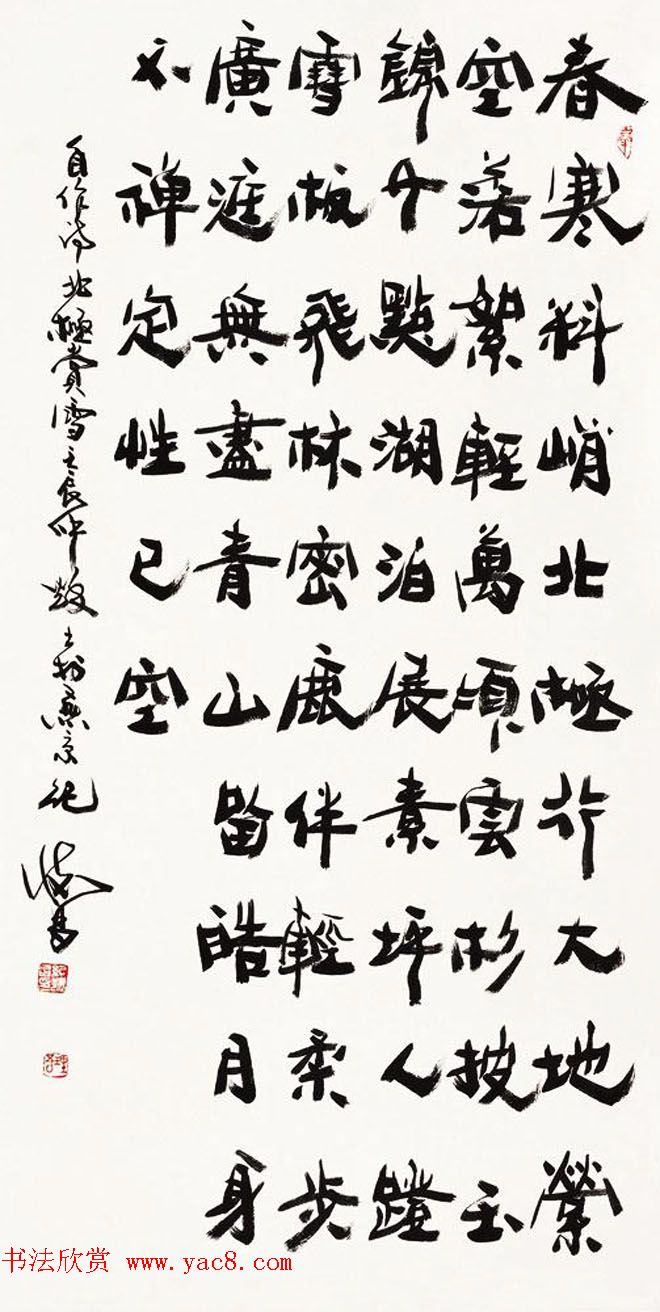 春寒料峭北極行大地縈
空落絮輕萬頃雲杉披玉
錦千點湖泊展素坪人蹬
雪板飛林密鹿伴輕柔步
廣涯無盡青山留皓月身
不禪定性已空
自作詩北極賞雪壬辰仲於燕京紀懷昌
书法欣赏 www.yac8.com